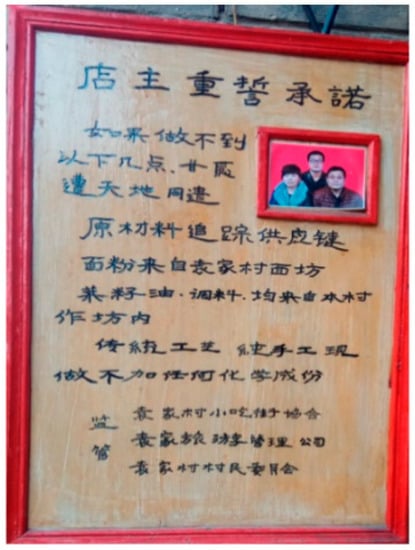 店主重誓承諾
如果做不到
以下几点.甘愿
遭天地同遣
原材料追踪供应链
面粉来自袁家村面坊
菜籽油.调料.均来自本村
作坊内
传统工艺 纯手工现
做不加任何化学成份
监管
袁家村小吃街協会
袁家旅游管理公司
袁家村村民委员会